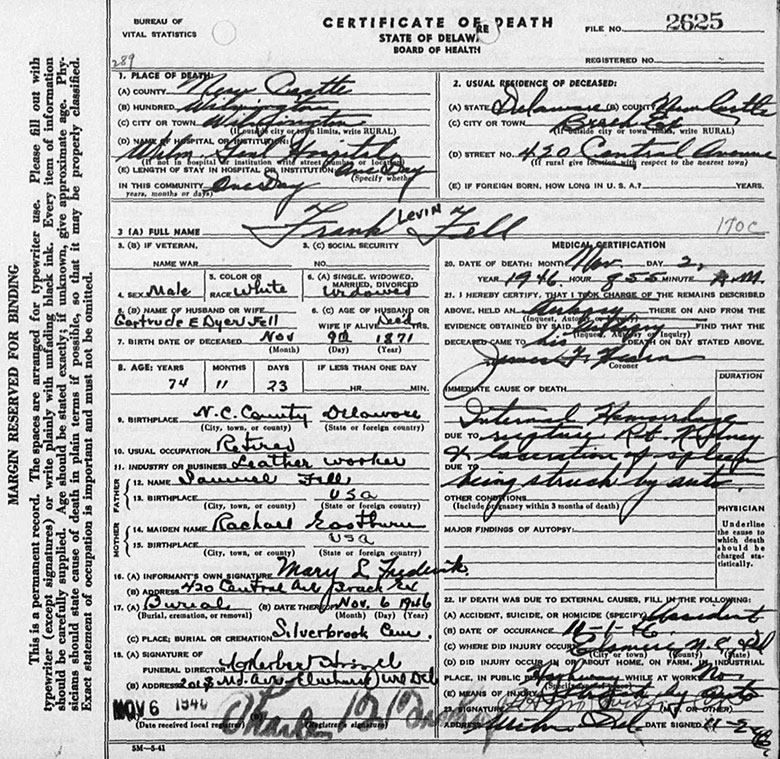 BUREAU OF
VITAL STATISTICS
CERTIFICATE OF DEATH
STATE OF DELAWARE
BOARD OF HEALTH
FILE NO. 2625
REGISTERED NO.
289
MARGIN RESERVED FOR BINDING
This is a permanent record. The spaces are arranged for typewriter use. Please fill out with
typewriter (except signatures) or write plainly with unfading black ink. Every item of information
should be carefully supplied. Age should be stated exactly; if unknown, give approximate age. Phy-
sicians should state cause of death in plain terms if possible, so that it may be properly classified.
Exact statement of occupation is important and must not be omitted.
1. PLACE OF DEATH:
(A) COUNTY New Castle
(B) HUNDRED Wilmington
(C) CITY OR TOWN Wilmington
(If outside city or town limits, write RURAL)
(D) NAME OF HOSPITAL OR INSTITUTION:
Wilm Genl Hospital
(If not in hospital or institution write street number or location)
(E) LENGTH OF STAY IN HOSPITAL OR INSTITUTION One Day
(Specify whether
IN THIS COMMUNITY One Day
years, months or days)
2. USUAL RESIDENCE OF DECEASED:
(A) STATE Delaware (B) COUNTY New Castle
(C) CITY OR TOWN Brack Ex
(If outside city or town limits, write RURAL)
(D) STREET NO. 420 Central Avenue
(If rural give location with respect to the nearest town)
(E) IF FOREIGN BORN, HOW LONG IN U. S. A.? YEARS.
3 (A) FULL NAME Frank LEVIN Fell
170C
3. (B) IF VETERAN,
NAME WAR
3. (C) SOCIAL SECURITY
NO.
4. SEX Male
5. COLOR OR
RACE White
6. (A) SINGLE, WIDOWED,
MARRIED, DIVORCED
Widowed
6. (B) NAME OF HUSBAND OR WIFE
Gertrude E Dyer Fell
6. (C) AGE OF HUSBAND OR
WIFE IF ALIVE Dec'd YRS.
7. BIRTH DATE OF DECEASED Nov 9th 1871
(Month) (Day) (Year)
8. AGE: YEARS MONTHS DAYS IF LESS THAN ONE DAY
74 11 23 HR. MIN.
9. BIRTHPLACE N.C. County Delaware
(City, town, or county) (State or foreign country)
10. USUAL OCCUPATION Retired
11. INDUSTRY OR BUSINESS Leather worker
FATHER
12. NAME Samuel Fell
13. BIRTHPLACE USA
(City, town, or county) (State or foreign country)
MOTHER
14. MAIDEN NAME Rachael Eastburn
15. BIRTHPLACE USA
(City, town, or county) (State or foreign country)
16. (A) INFORMANT'S OWN SIGNATURE Mary L Frederick
(B) ADDRESS 420 Central Ave Brack Ex
17. (A) Burial (B) DATE THEREOF Nov. 6 1946
(Burial, cremation, or removal) (Month) (Day) (Year)
(C) PLACE; BURIAL OR CREMATION Silverbrook Cem.
18. (A) SIGNATURE OF
FUNERAL DIRECTOR
(B) ADDRESS Elmhurst Wil Del
NOV 6 1946
(Date received local registrar) (Registrar's signature)
5M-5-41
MEDICAL CERTIFICATION
20. DATE OF DEATH: MONTH Nov DAY 2,
YEAR 1946 HOUR 8 55 MINUTE A.M.
21. I HEREBY CERTIFY, THAT I TOOK CHARGE OF THE REMAINS DESCRIBED
ABOVE, HELD AN Autopsy THERE ON AND FROM THE
(Inquest, Autopsy or Inquiry)
EVIDENCE OBTAINED BY SAID Autopsy FIND THAT THE
(Inquest, Autopsy or Inquiry)
DECEASED CAME TO his DEATH ON DAY STATED ABOVE.
James F. Hearn
Coroner
DURATION
IMMEDIATE CAUSE OF DEATH
Internal Hemorrhage
DUE TO rupture Rt. Kidney
& laceration of spleen
DUE TO being struck by auto.
OTHER CONDITIONS
(Include pregnancy within 3 months of death)
MAJOR FINDINGS OF AUTOPSY:
PHYSICIAN
Underline
the cause to
which death
should be
charged sta-
tistically.
22. IF DEATH WAS DUE TO EXTERNAL CAUSES, FILL IN THE FOLLOWING:
(A) ACCIDENT, SUICIDE, OR HOMICIDE (SPECIFY) Accident
(B) DATE OF OCCURANCE 11-1-46
(C) WHERE DID INJURY OCCUR? Elsmere N.C. Del
(City or town) (County) (State)
(D) DID INJURY OCCUR IN OR ABOUT HOME, ON FARM, IN INDUSTRIAL
PLACE, IN PUBLIC Highway WHILE AT WORK No.
(E) MEANS OF INJURY Struck by auto
23. SIGNATURE (M.D. OR OTHER)
ADDRESS Wilm. Del. DATE SIGNED 11-2-46